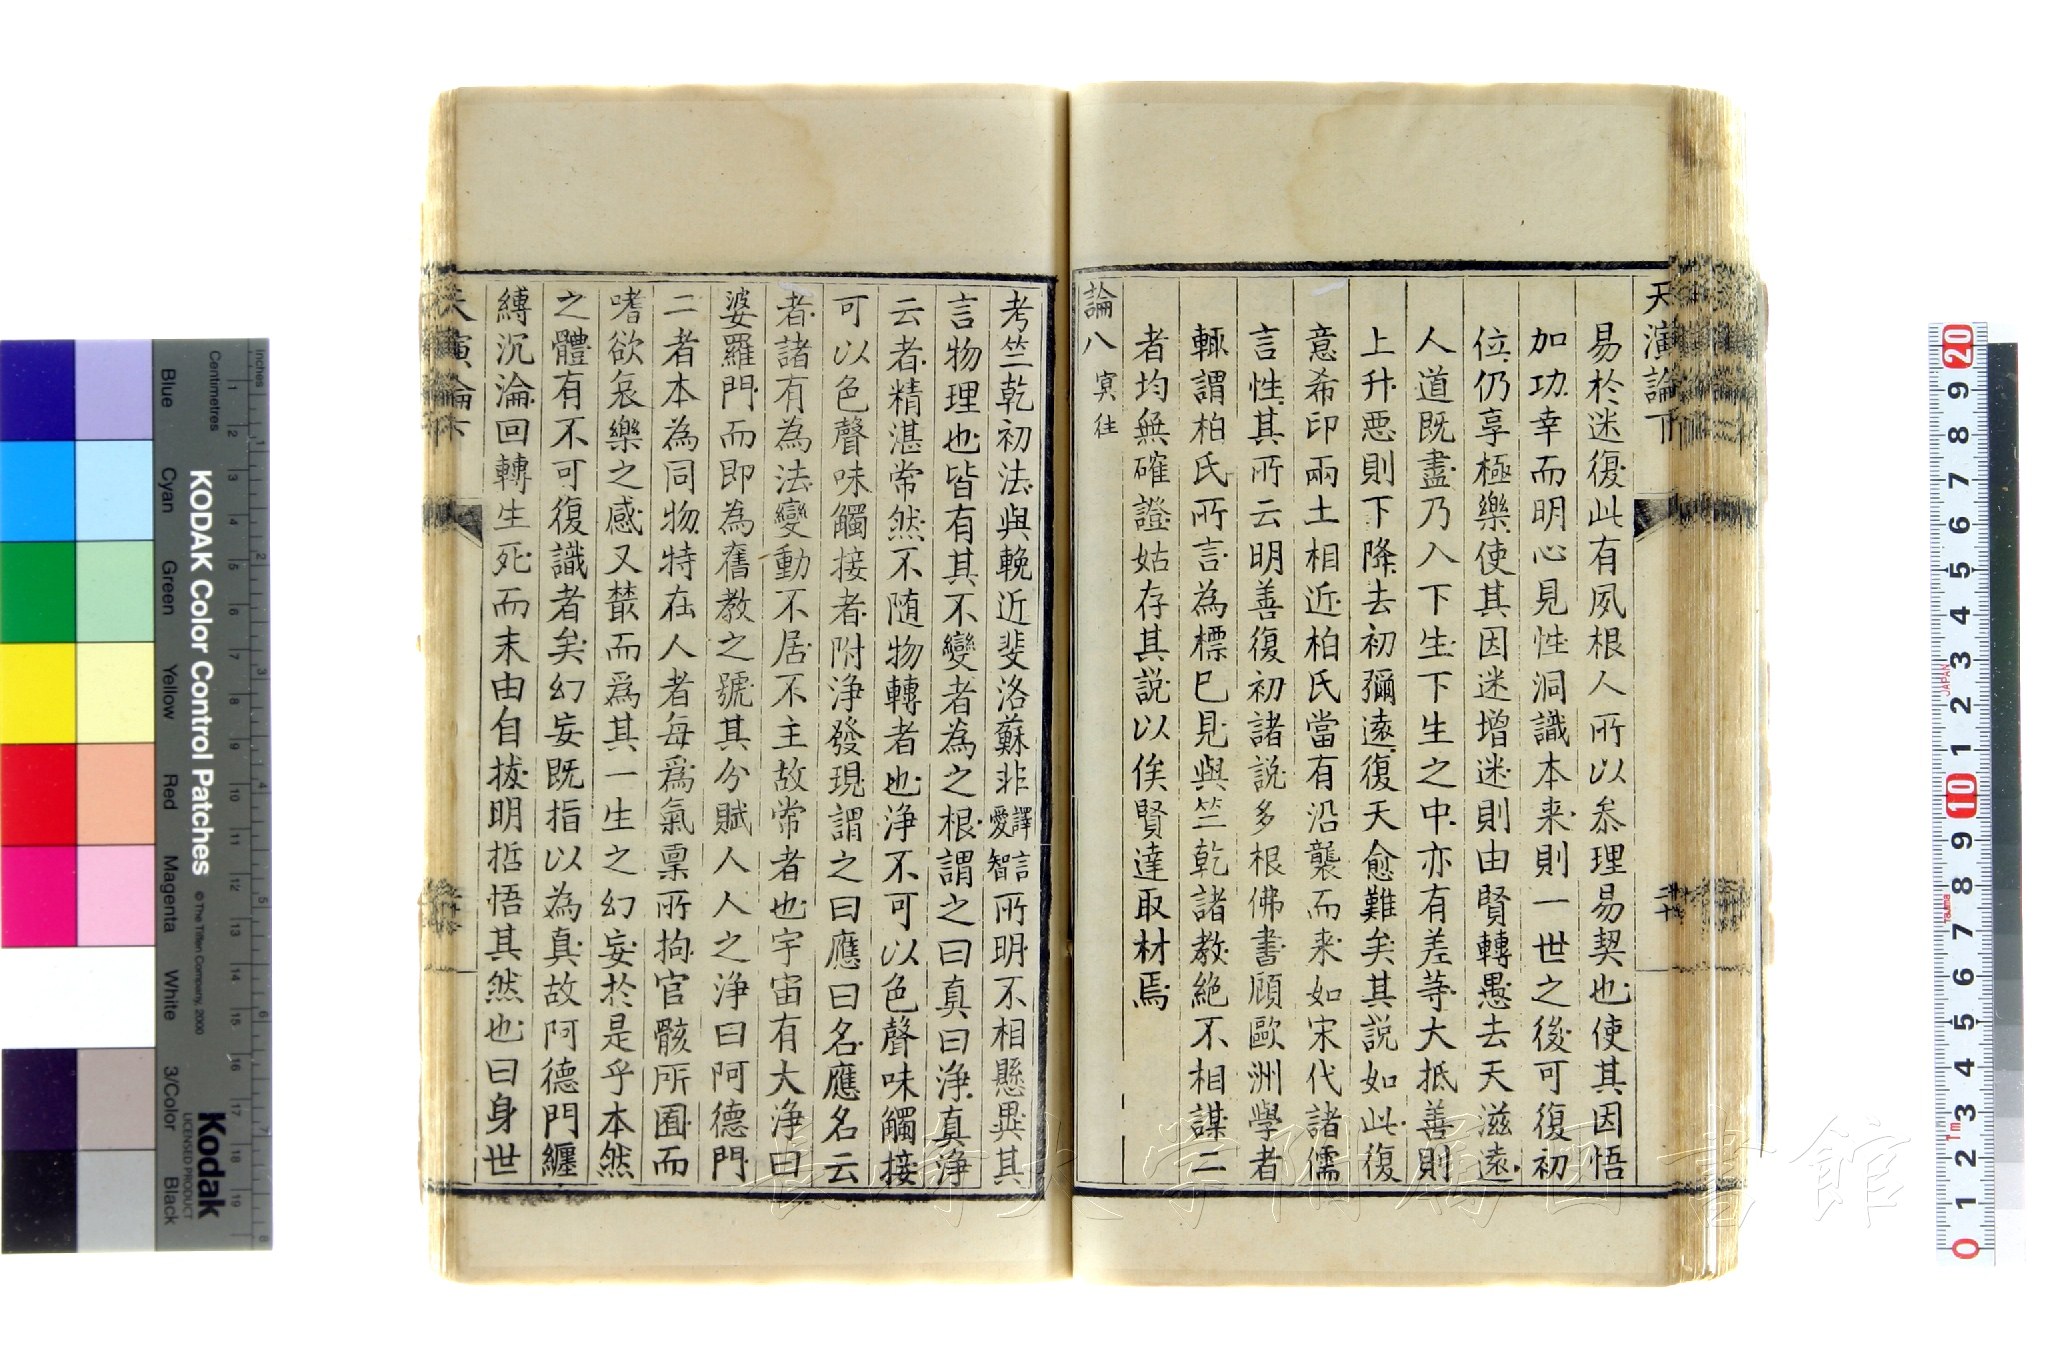 天演論下
易於迷復此有夙根人所以參理易契也使其因悟
加功幸而明心見性洞識本来則一世之後可復初
位仍享極樂使其因迷增迷則由賢轉愚去天滋遠
人道既盡乃入下生下生之中亦有差等大抵善則
上升惡則下降去初彌遠復天愈難矣其説如此復
意希印兩土相近柏氏當有沿襲而来如宋代諸儒
言性其所云明善復初諸説多根佛書顧歐洲學者
輒謂柏氏所言為標己見與竺乾諸教絶不相謀二
者均無確證姑存其説以俟賢達取材焉
論八 冥往
二十
考竺乾初法與輓近斐洛蘇非譯言愛智所明不相懸異其
言物理也皆有其不變者為之根謂之曰真曰淨真淨
云者精湛常然不随物轉者也淨不可以色聲味觸接
可以色聲味觸接者附淨發現謂之曰應曰名應名云
者諸有為法變動不居不主故常者也宇宙有大淨曰
婆羅門而即為舊教之號其分賦人人之淨曰阿德門
二者本為同物特在人者每爲氣稟所拘官骸所囿而
嗜欲哀樂之感又叢而爲其一生之幻妄於是乎本然
之體有不可復識者矣幻妄既指以為真故阿德門纏
縛沉淪回轉生死而末由自拔明哲悟其然也曰身世
天演論下
KODAK Color Control Patches
© The Tiffen Company, 2000
Kodak
LICENSED PRODUCT
Inches
Centimetres
Blue
Cyan
Green
Yellow
Red
Magenta
White
3/Color
Black
JAPAN
Tajima
長崎大学附属図書館